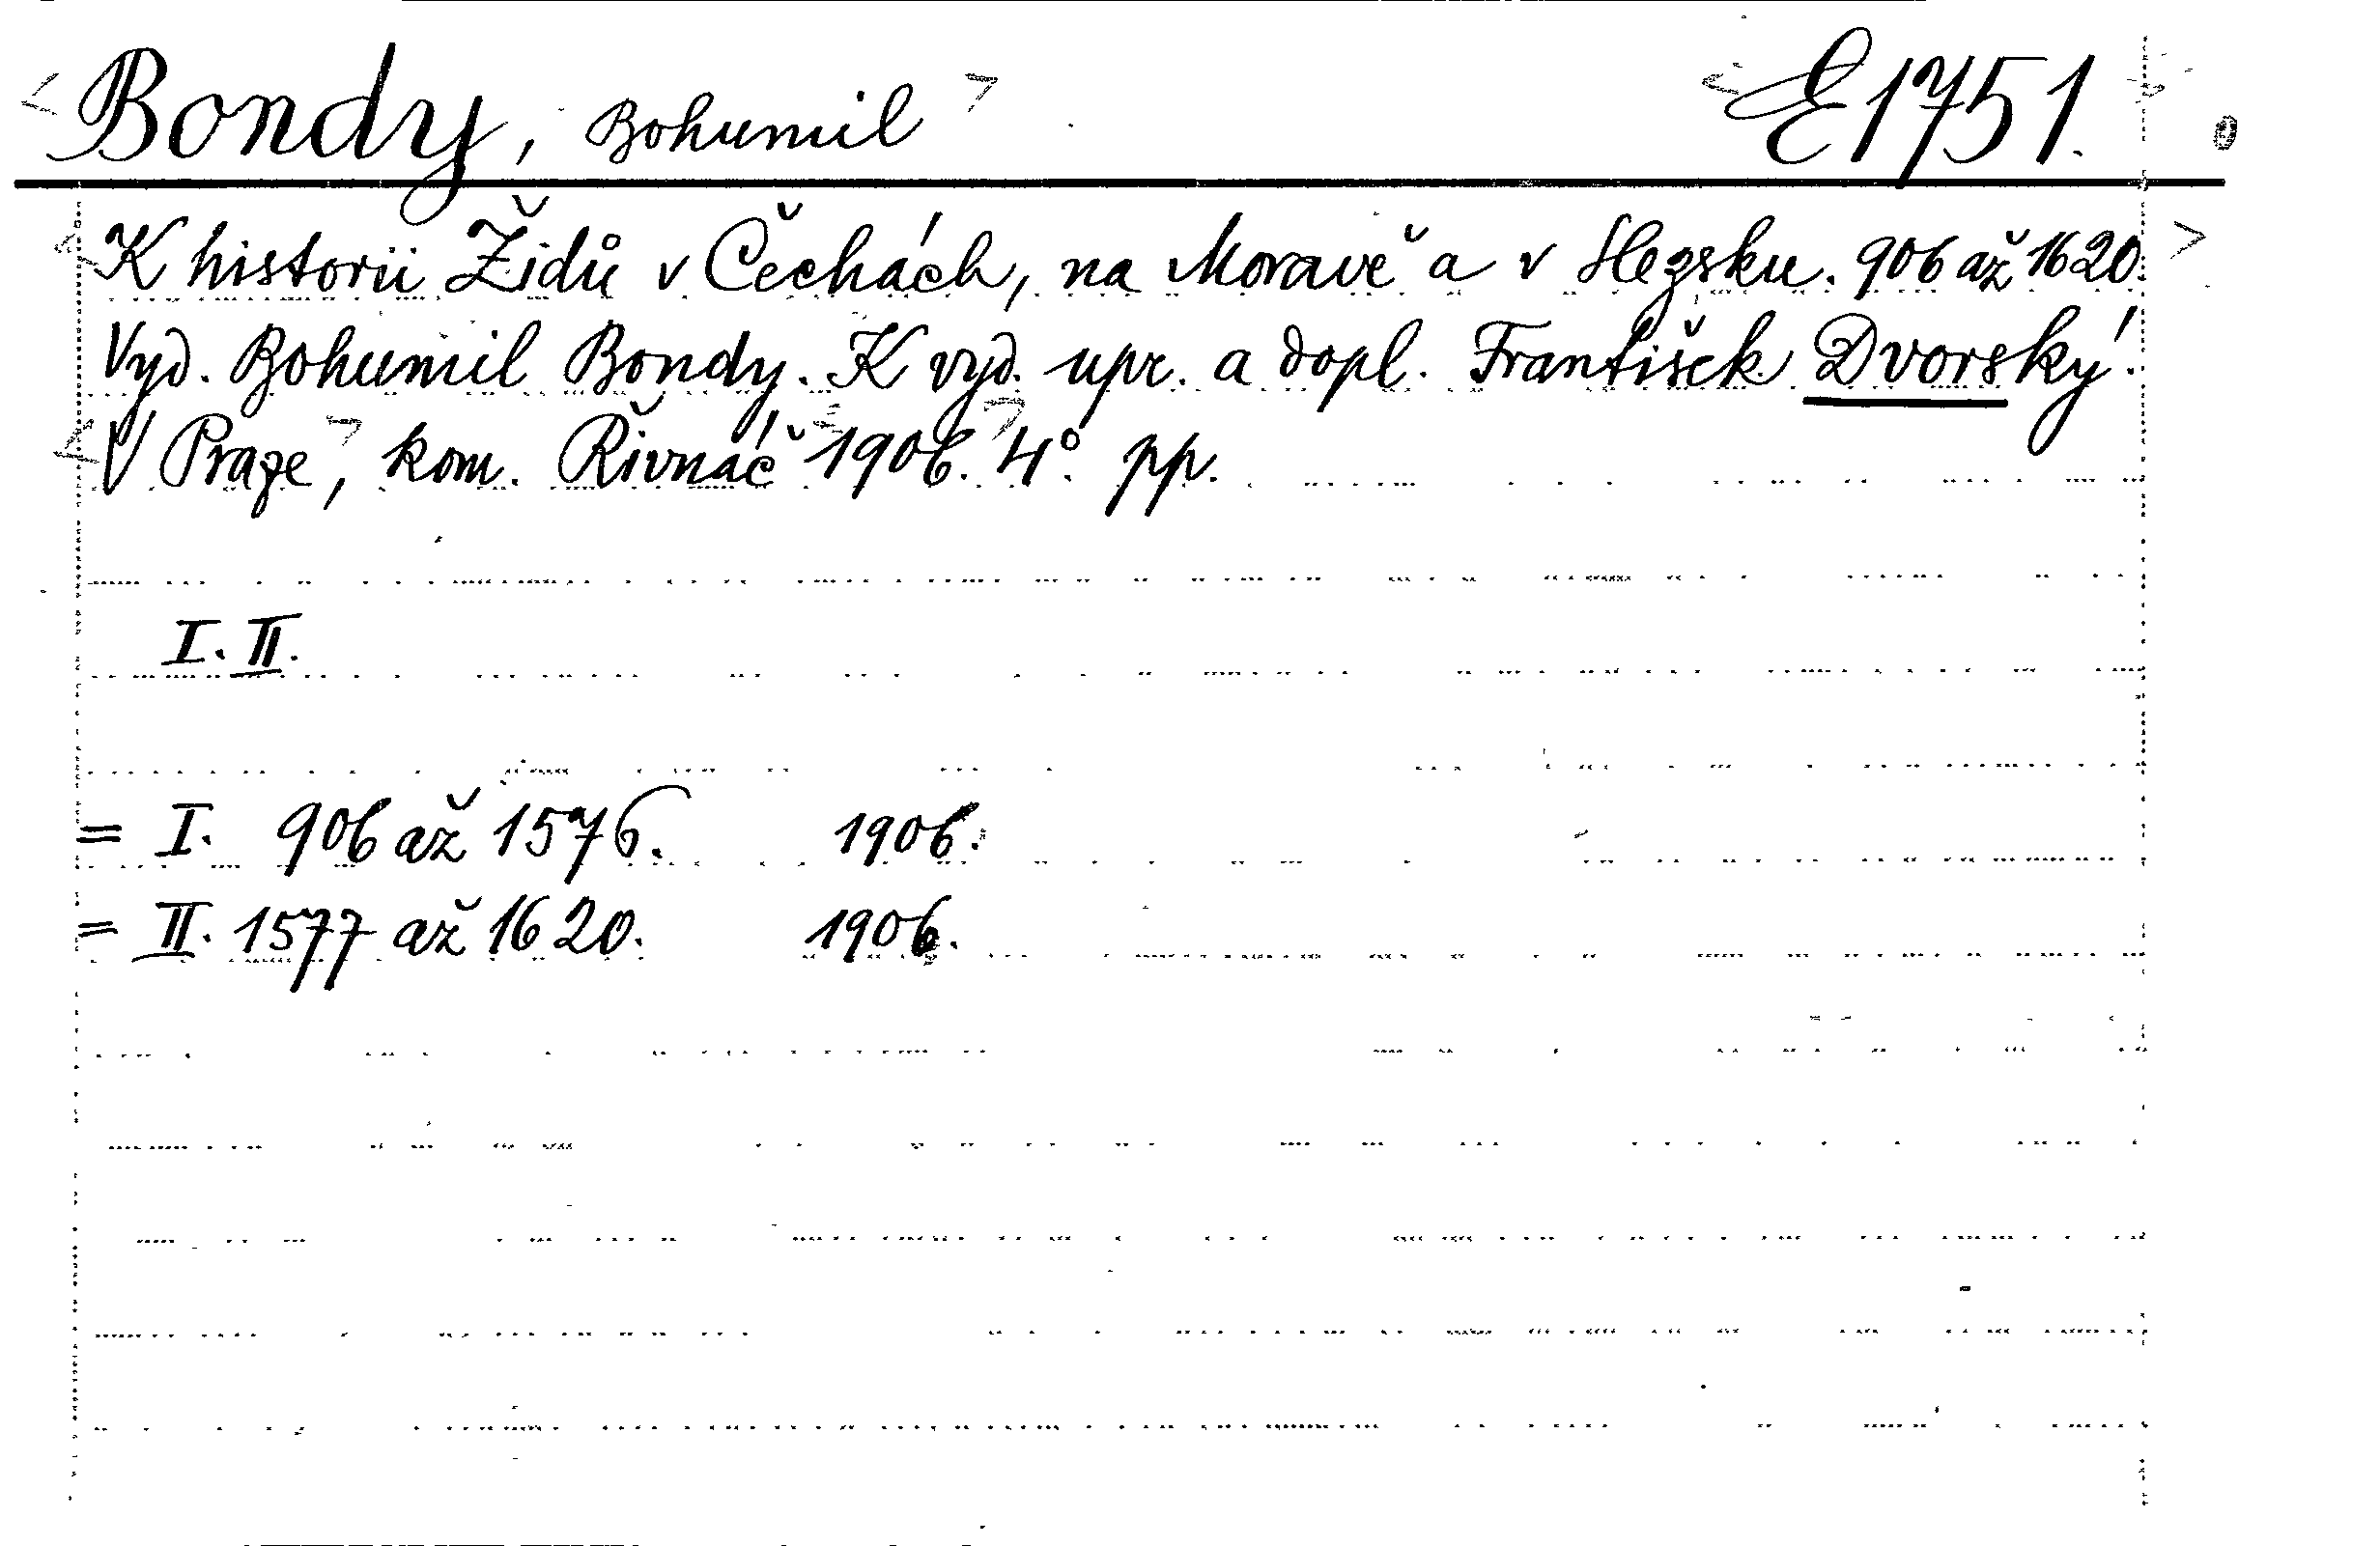 Bondy, Bohumil E1751.
K historii Židů v Čechách, na Moravě a v Slezsku. 906 až 1620.
Vyd. Bohumil Bondy. K vyd. upr. a dopl. František Dvorský.
V Praze, kom. Řivnáč 1906. 4°. pp.
I. II.
= I. 906 až 1576. 1906.
= II. 1577 až 1620. 1906.